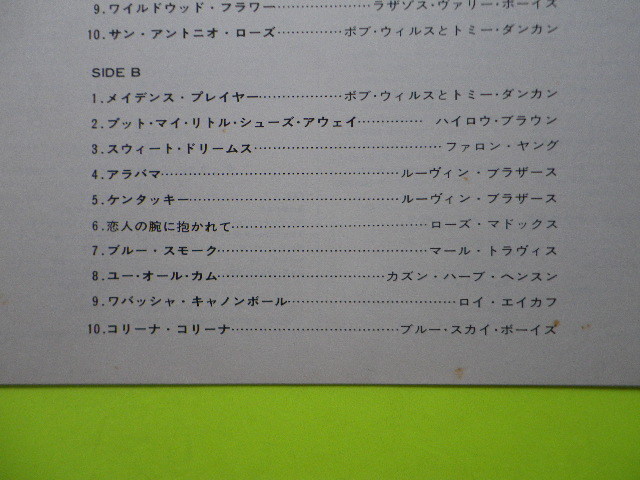 9.ワイルドウッド・フラワー……………ラザゾス・ヴァリー・ボーイズ
10.サン・アントニオ・ローズ…………ボブ・ウィルスとトミー・ダンカン
SIDE B
1.メイデンス・プレイヤー……………ボブ・ウィルスとトミー・ダンカン
2.プット・マイ・リトル・シューズ・アウェイ…………ハイロウ・ブラウン
3.スウィート・ドリームス……………………………ファロン・ヤング
4.アラバマ……………………………………ルーヴィン・ブラザース
5.ケンタッキー………………………………ルーヴィン・ブラザース
6.恋人の腕に抱かれて……………………………ローズ・マドックス
7.ブルー・スモーク………………………………マール・トラヴィス
8.ユー・オール・カム…………………………カズン・ハーブ・ヘンスン
9.ワバッシャ・キャノンボール…………………………ロイ・エイカフ
10.コリーナ・コリーナ…………………………ブルー・スカイ・ボーイズ